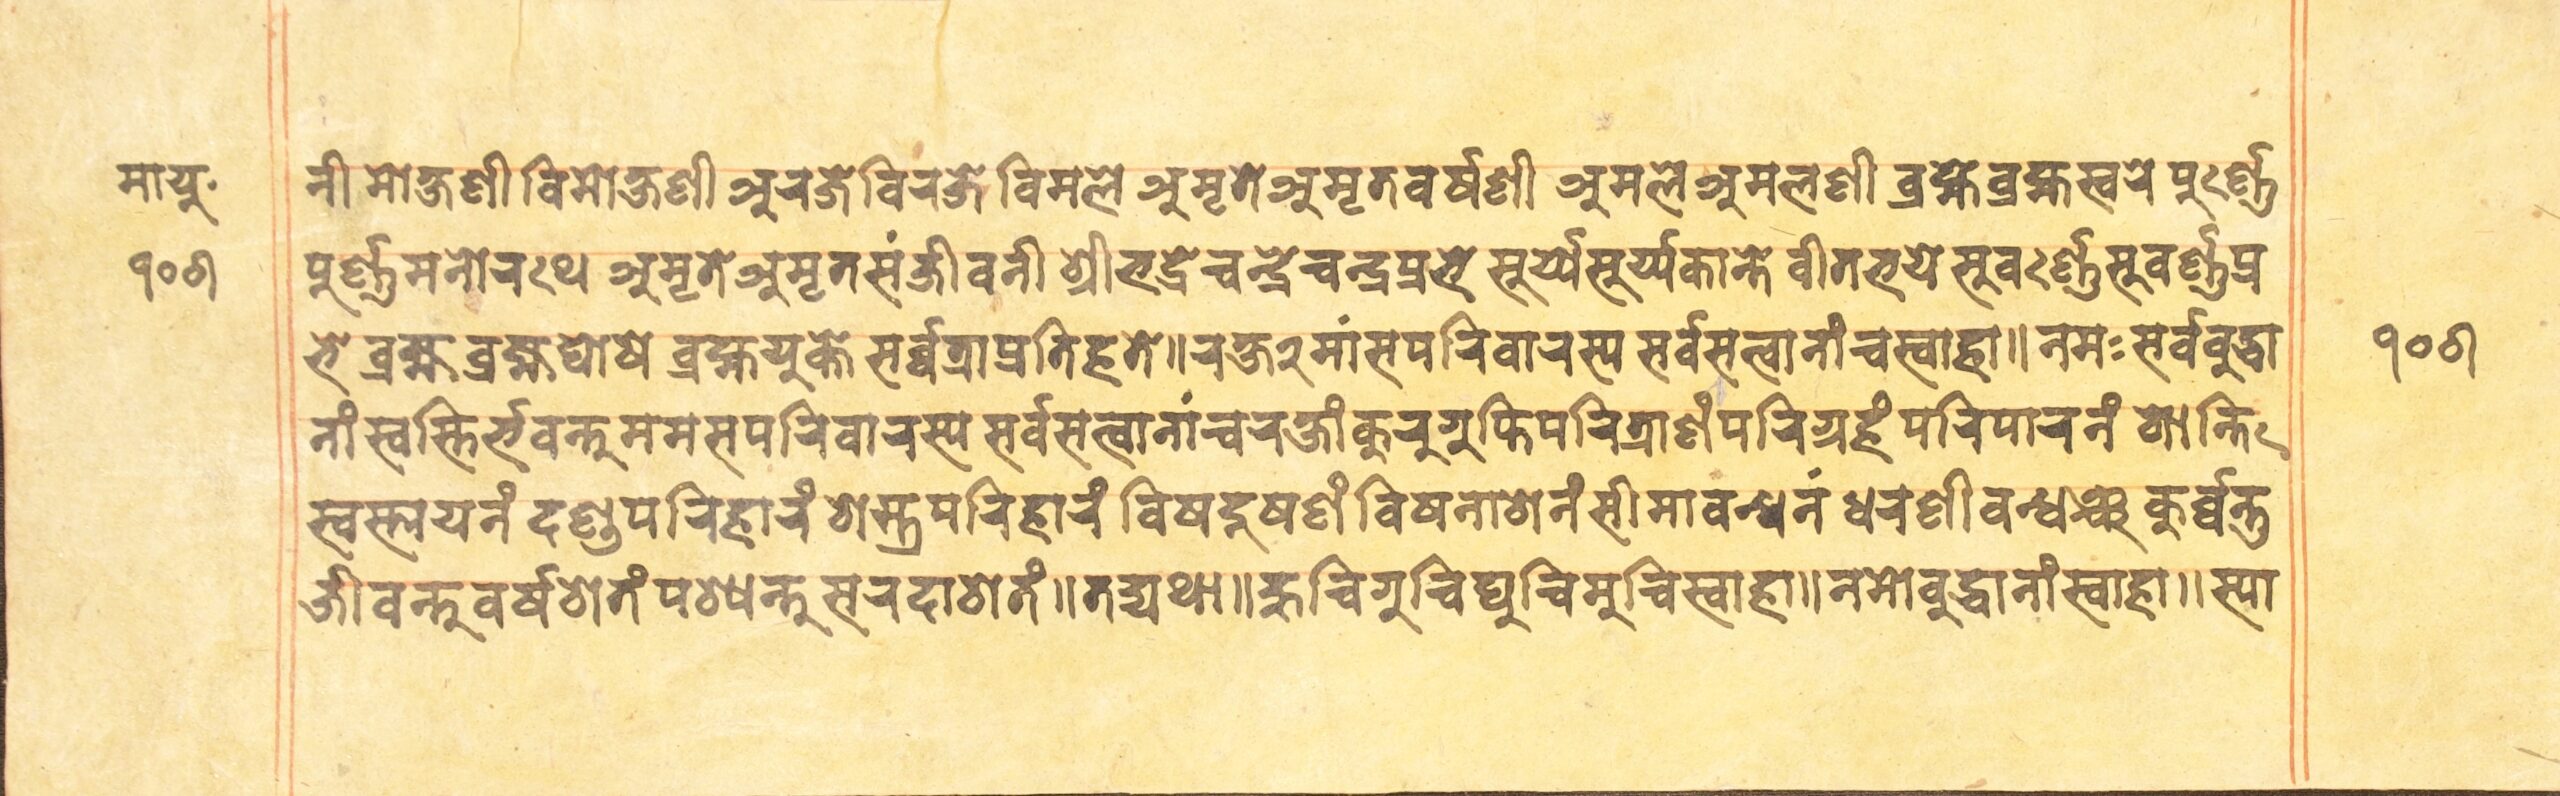 मायु॰
नी मोक्षणी विमोक्षणी अरजे विरजे विमले अमृते अमृतवर्षणी अमले अमलणी ब्रह्मे ब्रह्मस्वरे पुर्ण्णे
१०९ पुर्ण्णमनोरथे अमृते अमृतसंजीवनी श्रीभद्रे चन्द्रे चन्द्रप्रभे सूर्य्ये सूर्य्यकान्ते वीतभये सुवर्ण्णे सुवर्ण्णप्र
भे ब्रह्म ब्रह्मघोषे ब्रह्मयुक्ते सर्व्वत्राप्रतिहते॥ रक्ष२ मां सपरिवारस्य सर्वसत्वानांच स्वाहा॥ नमः सर्वबुद्धा १०९
नां स्वस्तिर्भवन्तु मम सपरिवारस्य सर्वसत्वानांच रक्षां कुरु गुप्ति परित्राणं परिग्रहं परिपारनं शान्ति
स्वस्त्ययनं दण्डपरिहारं शस्त्रपरिहारं विषदूषणं विषनाशनं सीमाबन्धनं धरणीबन्धञ्च कुर्व्वन्तु
जीवन्तु वर्षशतं पश्यन्तु सरदाशतं॥ तद्यथा॥ हुचि गुचि घुचि मुचि स्वाहा॥ नमो बुद्धानां स्वाहा॥ स्या